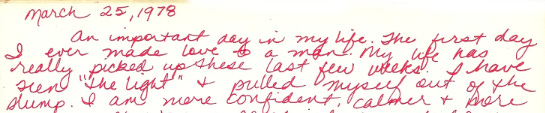 March 25, 1978
An important day in my life. The first day
I ever made love to a man. My life has
really picked up these last few weeks. I have
seen "The light" + pulled myself out of the
slump. I am more confident, calmer + more